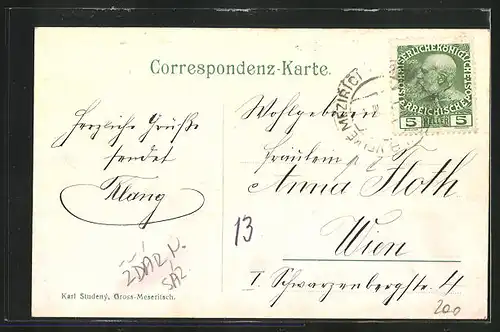 Correspondenz-Karte.
KAISERLICHE KÖNIGLICHE
ÖSTERREICHISCHE
5 HELLER 5
Herzliche Grüße
sendet
Klang
Wohlgeboren
Fräulein
Anna Floth
Wien
I. Schwarzenbergstr. 4
13
ŽĎÁR N.
SÁZ
Karl Studený, Gross-Meseritsch.
200